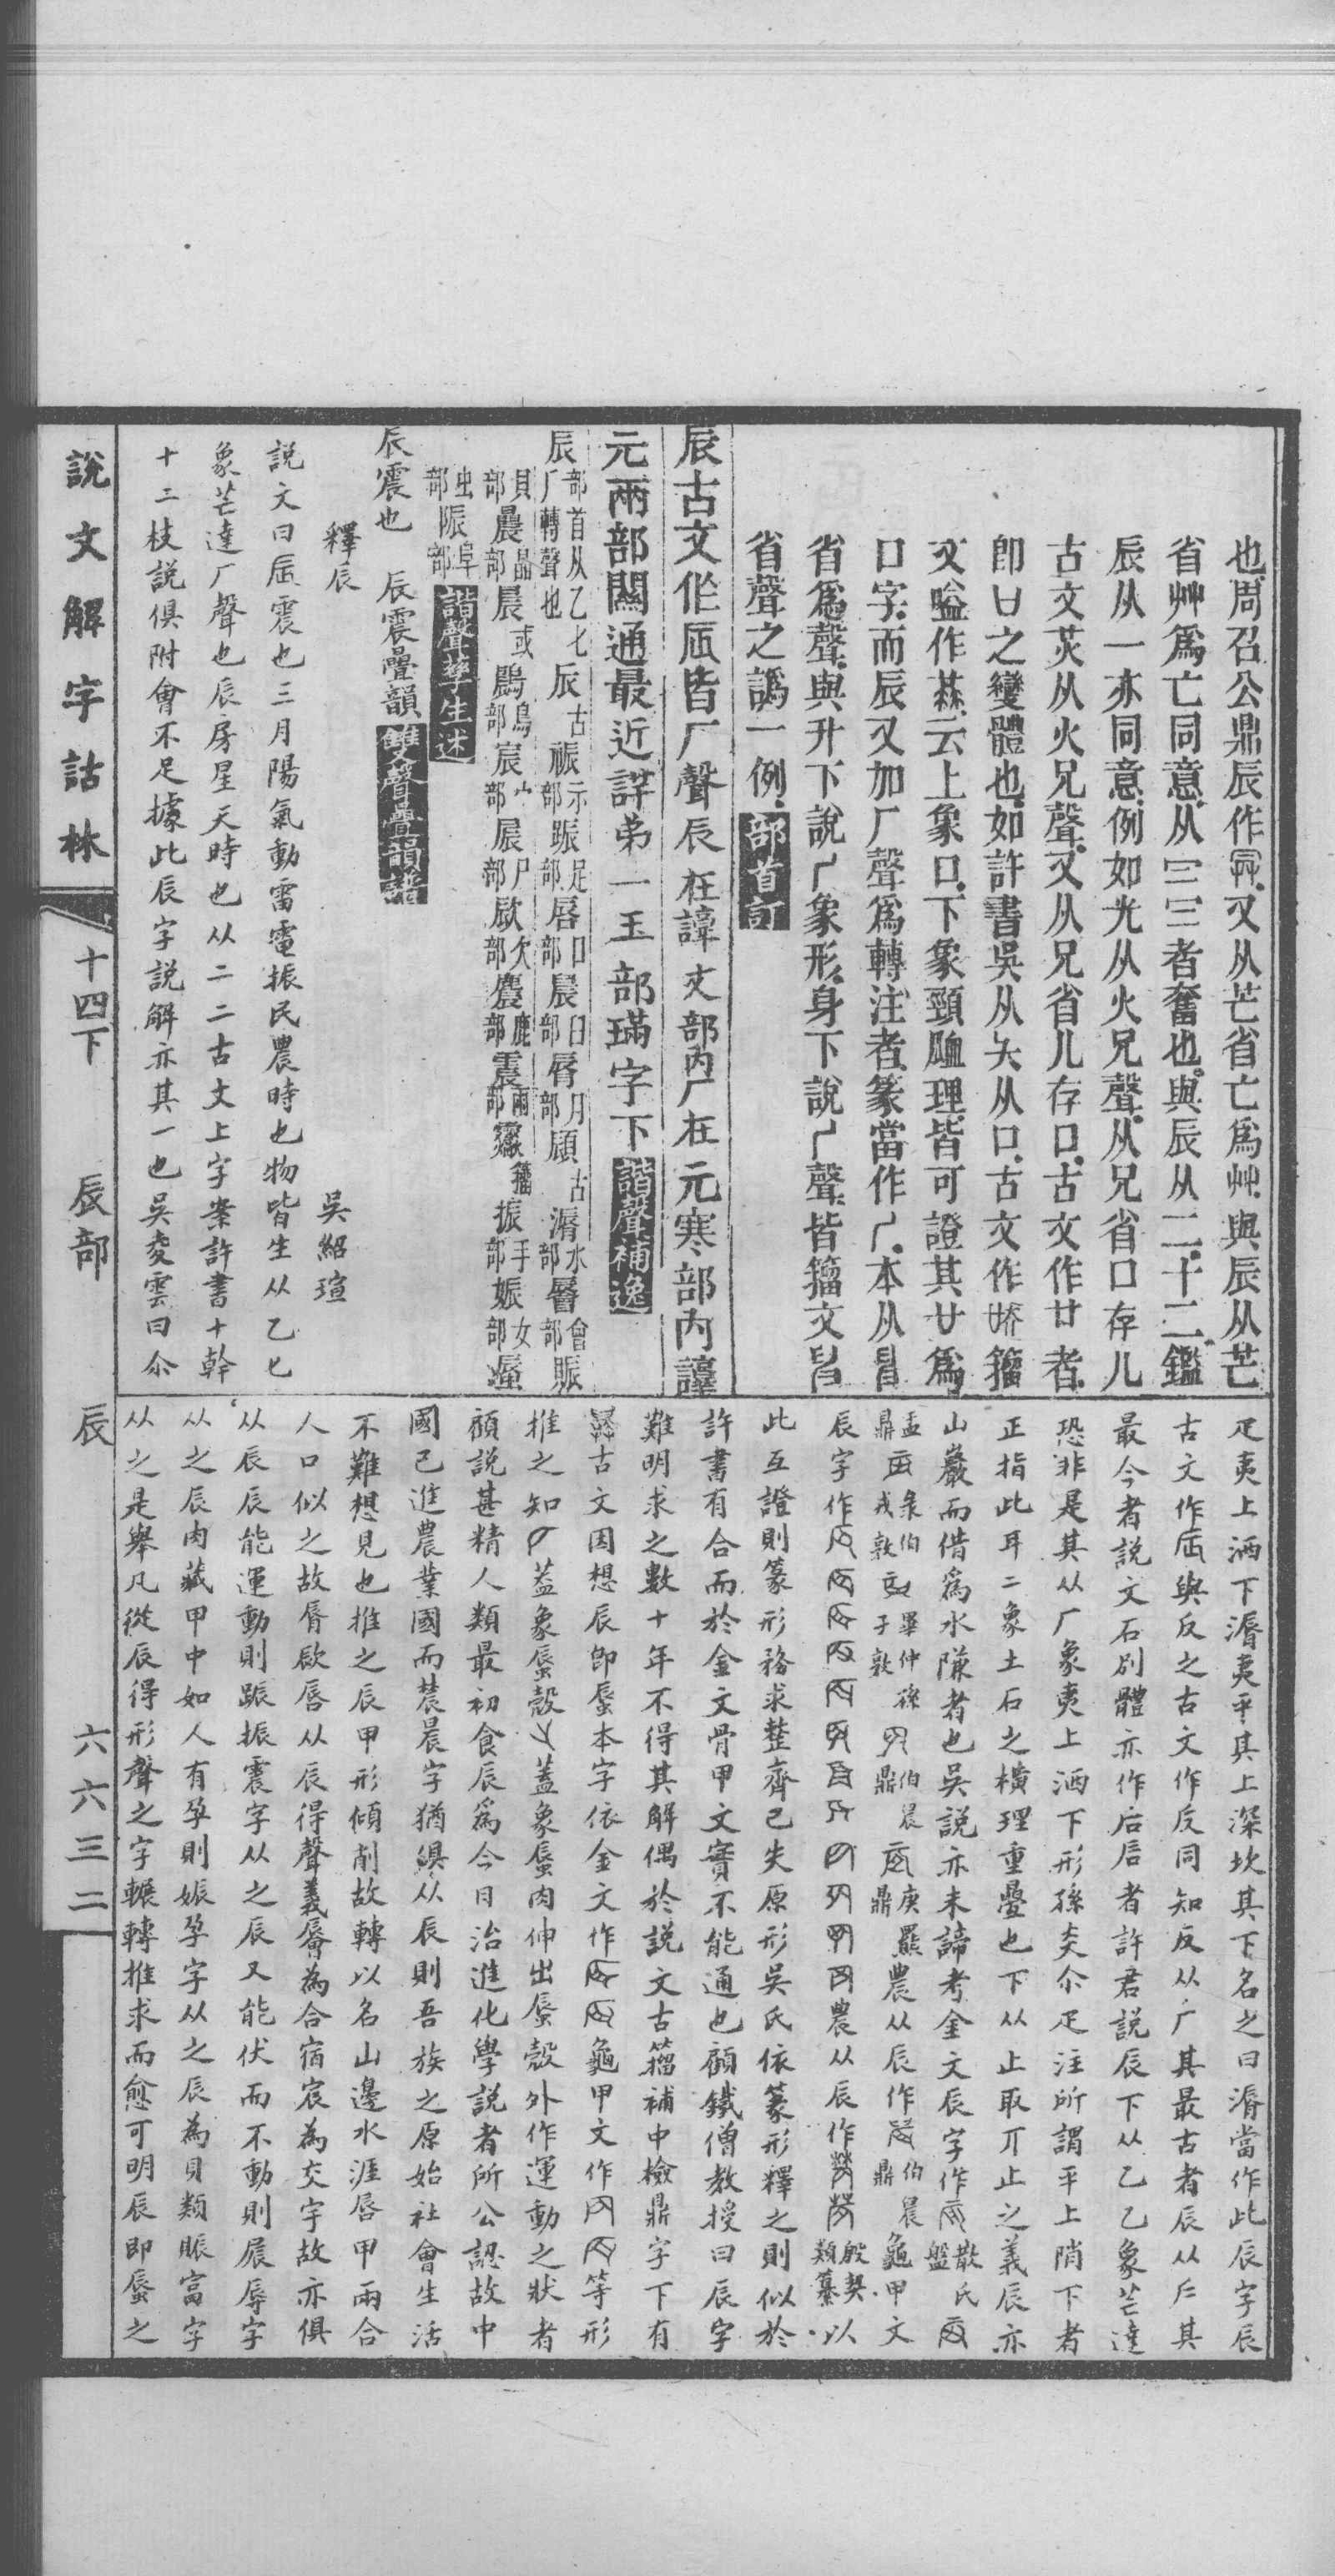 也周召公鼎辰作又从芒省亡爲艸與辰从芒
省艸爲亡同意从三三者奮也與辰从二十二鑑
辰从一亦同意例如光从火兄聲从兄省口存儿
古文炗从火兄聲又从兄省儿存口古文作廿者
卽口之變體也如許書吳从夨从口古文作籀
文嗌作云上象口下象頸脈理皆可證其廿爲
口字而辰又加厂聲爲轉注者篆當作本从𠂤
省爲聲與升下說象形身下說厂聲皆籀文
省聲之譌一例部首訂
辰古文作𠨷皆厂聲辰在諄文部內厂在元寒部內諄
元兩部關通最近詳弟一玉部璊字下諧聲補逸
辰部首从乙匕厂轉聲也辰古祳示部踬足部唇口部晨日部脣月部顧古漘水部會部賑
貝部晨晶部晨或鷐鳥部宸宀部屒尸部欼欠部麎鹿部震雨部籀振手部娠女部蜃
虫部陙𨸏部諧聲孳生述
辰震也 辰震疊韻雙聲疊韻譜
釋辰 吳紹瑄
説文曰𠨷震也三月陽氣動雷電振民農時也物皆生从乙匕
象芒達厂聲也辰房星天時也从二二古文上字案許書十幹
十二枝説俱附會不足據此辰字説解亦其一也吳夌雲曰尒
疋夷上洒下漘夷平其上深坎其下名之曰漘當作此辰字辰
古文作𠨷與反之古文作反同知反从厂其最古者辰从厂其
最今者説文石別體亦作后后者許君説辰下从乙乙象芒達
恐非是其从厂象夷上洒下形孫炎尒疋注所謂平上陗下者
正指此耳二象土石之橫理重疊也下从止取丌止之義辰亦
山巖而借爲水隒者也吳説亦未諦考金文辰字作散氏盤
盂鼎彔伯戎敦畢仲孫子敦伯晨鼎庚羆鼎農从辰作伯晨鼎龜甲文
辰字作農从辰作殷契類纂以
此互證則篆形務求整齊已失原形吳氏依篆形釋之則似於
許書有合而於金文骨甲文實不能通也顧鐵僧教授曰辰字
難明求之數十年不得其解偶於説文古籀補中檢鼎字下有
古文因想辰卽蜃本字依金文作龜甲文作等形
推之知蓋象蜃殼蓋象蜃肉伸出蜃殼外作運動之狀者
顧説甚精人類最初食辰爲今日治進化學説者所公認故中
國已進農業國而辳晨字猶俱从辰則吾族之原始社會生活
不難想見也推之辰甲形傾削故轉以名山邊水涯唇甲兩合
人口似之故脣欼唇从辰得聲義會爲合宿宸為交宇故亦俱
从辰辰能運動則踬振震字从之辰又能伏而不動則屒辱字
从之辰肉藏甲中如人有孕則娠孕字从之辰為貝類賑富字
从之是舉凡從辰得形聲之字輾轉推求而愈可明辰卽蜃之
說文解字詁林 十四下 辰部 辰 六六三二